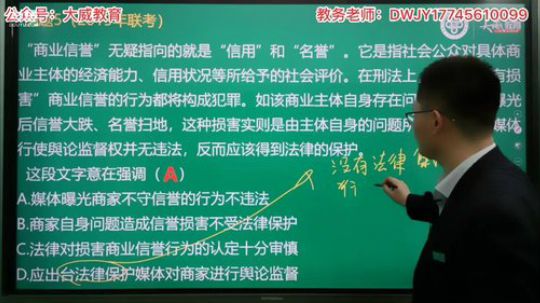 公众号：大威教育
教务老师：DWJY17745610099
年联考）
“商业信誉”无疑指向的就是“信用”和“名誉”。它是指社会公众对具体商
业主体的经济能力、信用状况等所给予的社会评价。在刑法上
有损
害”商业信誉的行为都将构成犯罪。如该商业主体自身存在问
曝光
后信誉大跌、名誉扫地，这种损害实则是由主体自身的问题所
媒体
行使舆论监督权并无违法，反而应该得到法律的保护。
没有法律
行
这段文字意在强调（A）
A.媒体曝光商家不守信誉的行为不违法
B.商家自身问题造成信誉损害不受法律保护
C.法律对损害商业信誉行为的认定十分审慎
D.应出台法律保护媒体对商家进行舆论监督